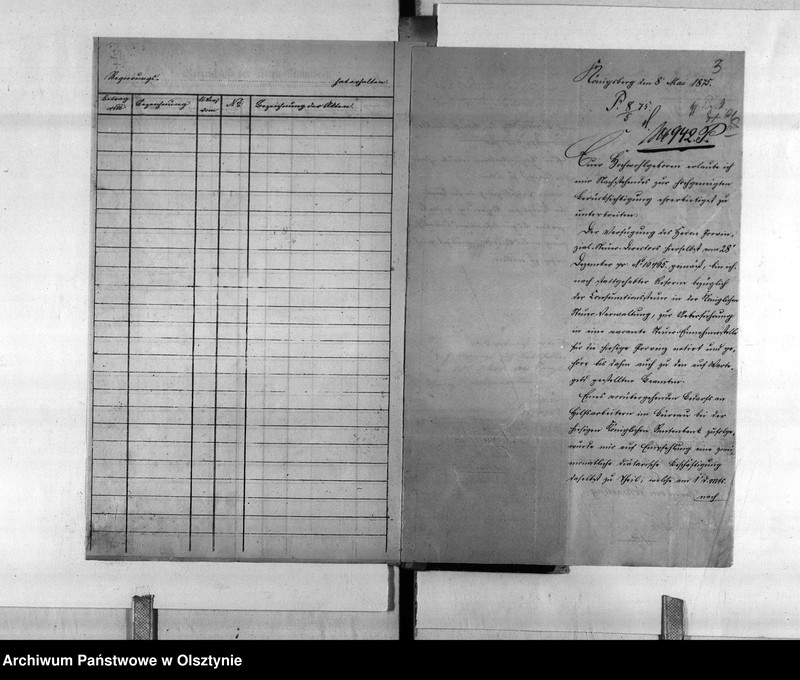 Regierungs- hat erhalten
Betrag Bezeichnung No. Bezeichnung der Akten.
3
Königsberg den 8 Mai 1875.
P 8/5 75
No 942. P.
Euer Hochwohlgeboren erlaube ich
mir Nachstehendes zur hochgeneigten
Berücksichtigung ehrerbietigst zu
unterbreiten.
Der Verfügung des Herrn Provin-
zial-Steuer-Directors hierselbst vom 28t
Dezember pr. No gemäß, bin ich,
nach stattgehabter Reform bezüglich
der Consumtionssteuer in der Königlichen
Steuer-Verwaltung, zur Ueberführung
in eine vacante Steuer-Einnehmerstelle
für die hiesige Provinz notirt und ge-
höre bis dahin auch zu den auf Warte-
geld gestellten Beamten.
Eines vorübergehenden Bedarfs an
Hilfsarbeitern im Büreau bei der
hiesigen Königlichen Rentenbank zufolge,
wurde mir auf Empfehlung eine
monatliche diätarische Beschäftigung
daselbst zu Theil, welche am 1t d. Mts.
noch
Archiwum Państwowe w Olsztynie